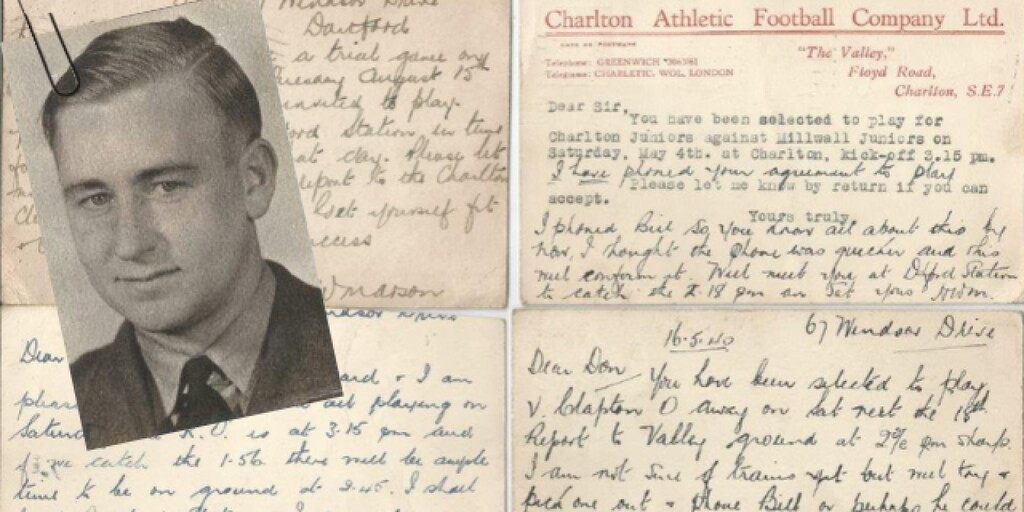 Windsor Drive
Dartford
a trial game on
Tuesday August 15th
invited to play.
Station in time
at day. Please let
report to the Charlton
yourself fit
success
Charlton Athletic Football Company Ltd.
Telephone: GREENWICH
Telegrams: CHARLETIC, WOL, LONDON
"The Valley,"
Floyd Road,
Charlton, S.E.7
Dear Sir,
You have been selected to play for
Charlton Juniors against Millwall Juniors on
Saturday, May 4th. at Charlton, kick-off 3.15 pm.
I have phoned your agreement to play
Please let me know by return if you can
accept.
Yours truly,
I phoned Bill so you know all about this by
now, I thought the phone was quicker and this
will confirm it. Will meet you at Station
to catch the 2.18 pm on Sat yours
Dear
& I am
playing on
K.O. is at 3.15 pm and
if we catch the 1.56 there will be ample
time to be on ground at 2.45. I shall
67 Windsor Drive
16.5.40
Dear Don You have been selected to play
v. Clapton O away on Sat next the 18th
Report to Valley ground at pm sharp.
I am not sure of trains yet but will try &
pick one out & phone Bill or perhaps he could